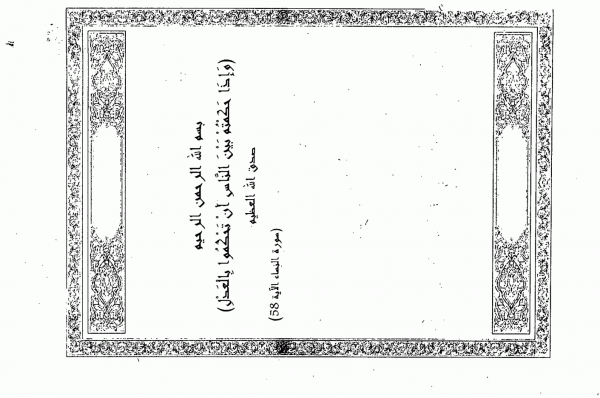 بسم الله الرحمن الرحيم
(وَإِذَا حَكَمْتُم بَيْنَ النَّاسِ أَنْ تَحْكُمُوا بِالعَدْلِ)
صدق الله العظيم
(سورة النساء الآية 58)